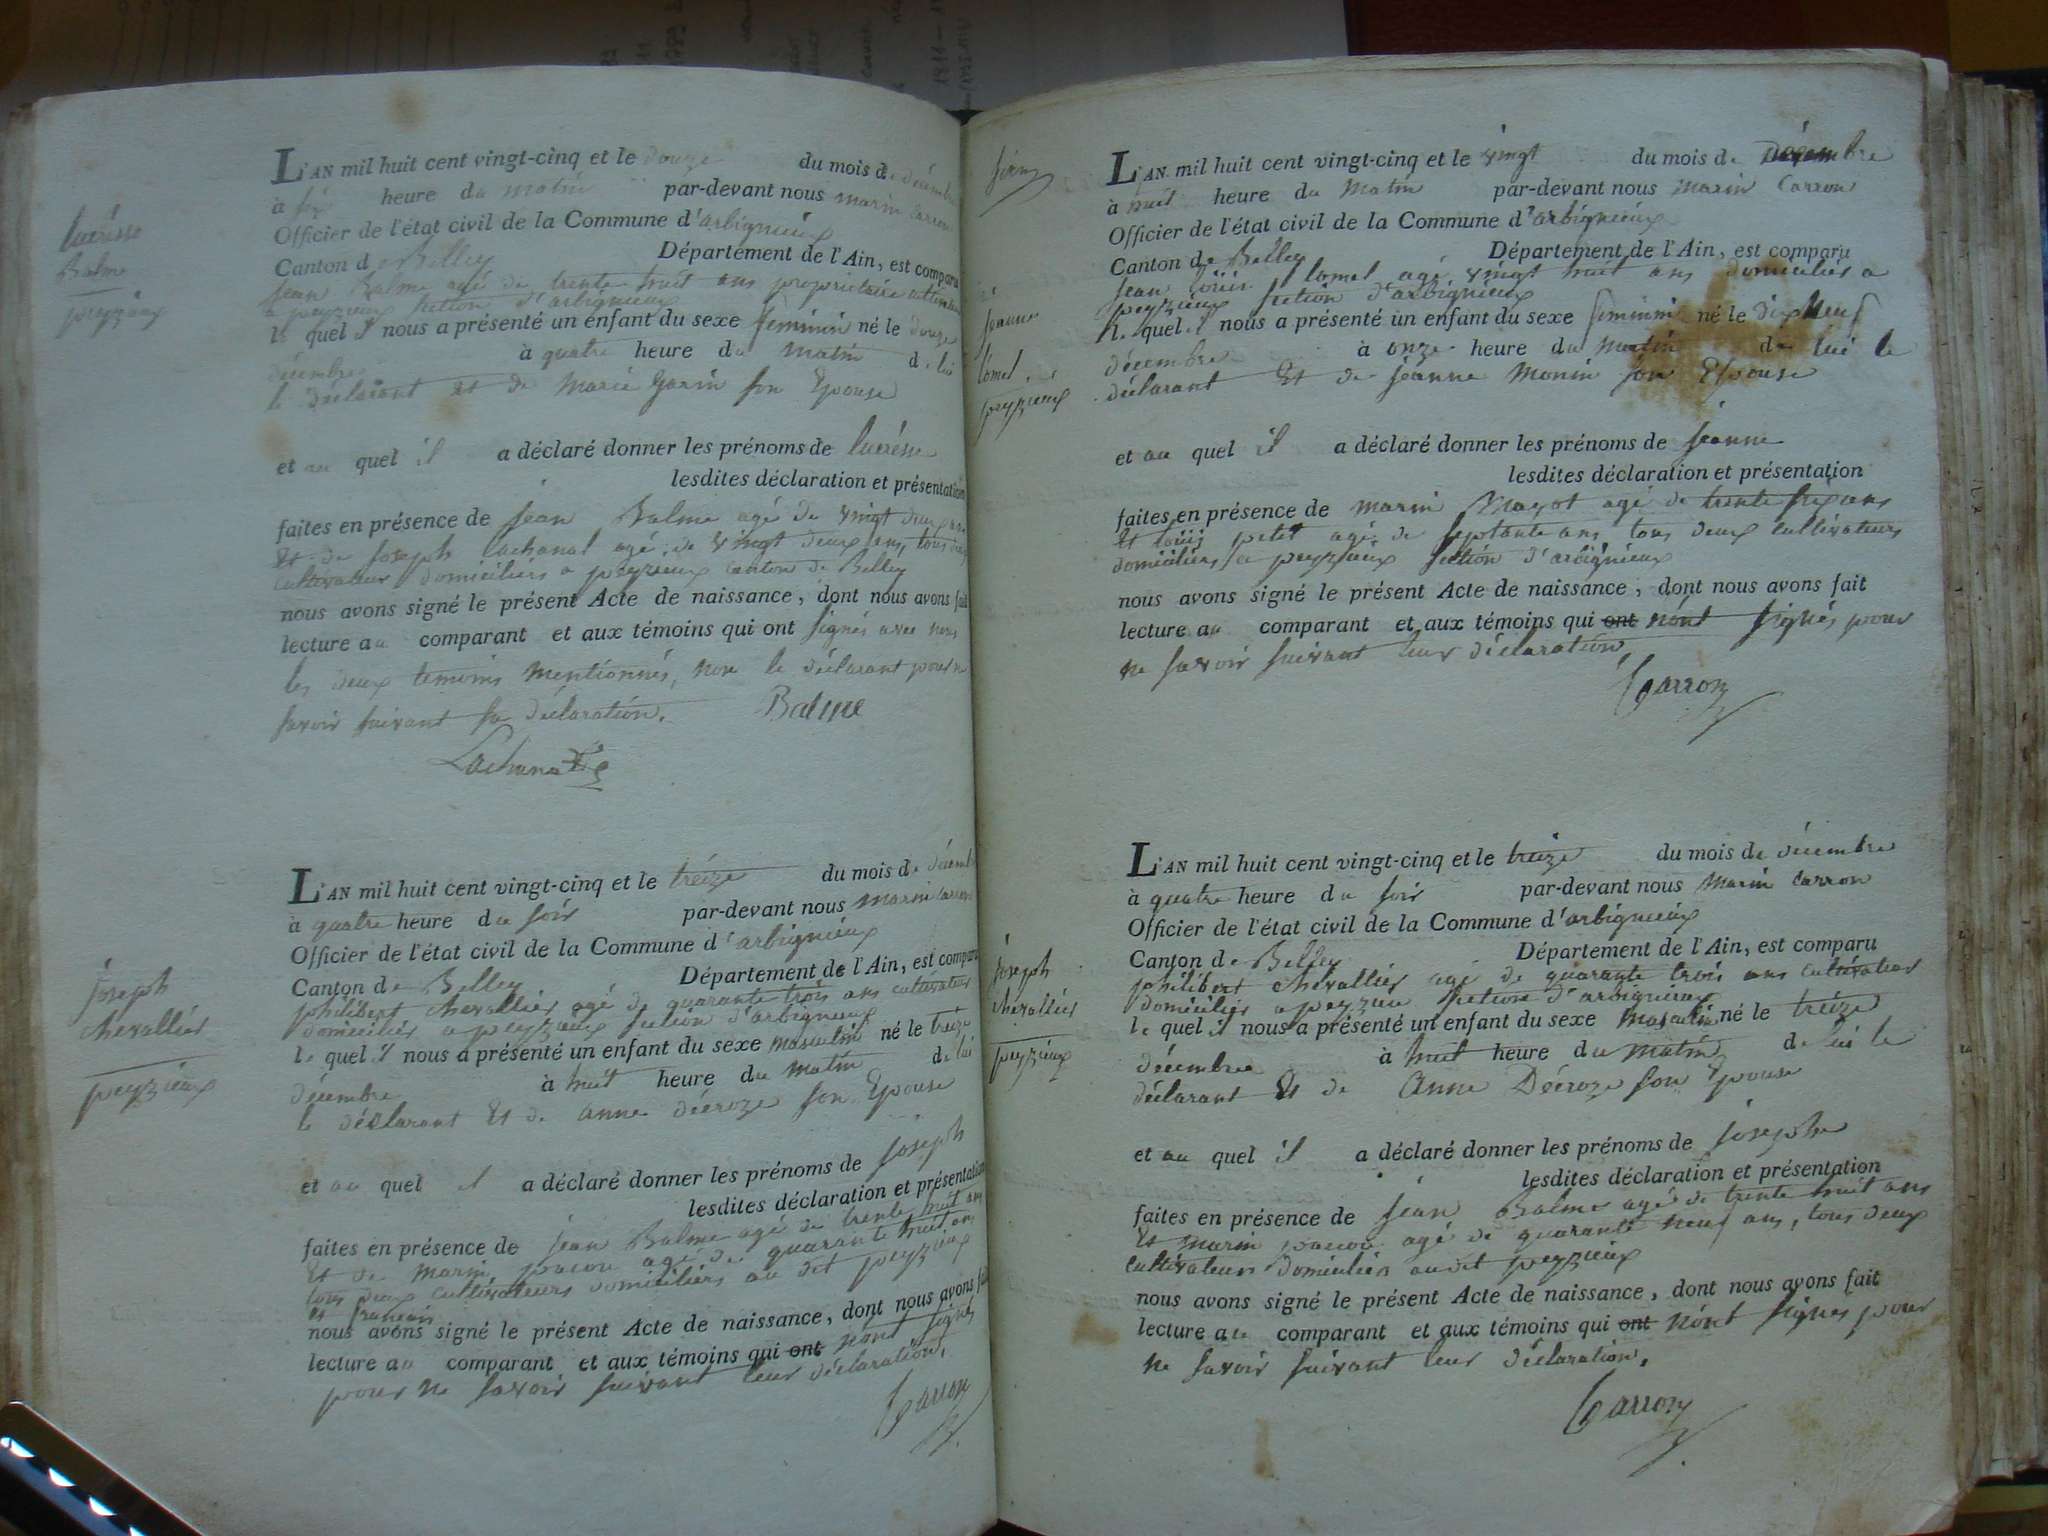 lucrésse
Balme
peyzieux
L'AN mil huit cent vingt-cinq et le douze du mois de décembre
à six heure du matin par-devant nous marin carron
Officier de l'état civil de la Commune d'arbignieux
Canton de Belley Département de l'Ain, est comparu
jean Balme agé de trente huit ans propriétaire cultivateur
a peyzieux section d'arbignieux
le quel il nous a présenté un enfant du sexe feminin né le douze
décembre à quatre heure du matin de lui
le déclarant et de Marie Garin son Epouse
et au quel il a déclaré donner les prénoms de lucrésse
lesdites déclaration et présentation
faites en présence de jean Balme agé de vingt deux ans
Et de joseph Lachanal agé de vingt deux ans, tous deux
cultivateur domiciliers a peyzieux canton de Belley
nous avons signé le présent Acte de naissance, dont nous avons fait
lecture au comparant et aux témoins qui ont signés avec nous
les deux temoins mentionnés, non le déclarant pour ne
savoir suivant sa déclaration. Balme
Lachanal
joseph
chevallier
peyzieux
L'AN mil huit cent vingt-cinq et le treize du mois de décembre
à quatre heure du soir par-devant nous marin carron
Officier de l'état civil de la Commune d'arbignieux
Canton de Belley Département de l'Ain, est comparu
philibert chevallier agé de quarante trois ans cultivateur
domicilier a peyzieux section d'arbignieux
le quel il nous a présenté un enfant du sexe masculin né le treize
décembre à huit heure du matin de lui
le déclarant Et de anne décroze son Epouse
et au quel il a déclaré donner les prénoms de joseph
lesdites déclaration et présentation
faites en présence de jean Balme agé de trente huit ans
Et de marin pacou agé de quarante huit ans
tous deux cultivateurs domiciliers au dit peyzieux
et francais
nous avons signé le présent Acte de naissance, dont nous avons fait
lecture au comparant et aux témoins qui ont n'ont signés
pour ne savoir suivant leur déclaration.
Carron
jeanne
lomel
peyzieux
L'AN mil huit cent vingt-cinq et le vingt du mois de Décembre
à huit heure du Matin par-devant nous marin Carron
Officier de l'état civil de la Commune d'arbignieux
Canton de Belley Département de l'Ain, est comparu
jean loüis lomel agé vingt huit ans domicilier a
peyzieux section d'arbignieux
le quel il nous a présenté un enfant du sexe feminin né le dix neuf
décembre à onze heure du Matin de lui le
déclarant Et de jéanne Monin son Epouse
et au quel il a déclaré donner les prénoms de jéanne
lesdites déclaration et présentation
faites en présence de marin Mayot agé de trente six ans
Et loüis petit agé de septante ans, tous deux cultivateurs
domiciliers a peyzieux section d'arbignieux
nous avons signé le présent Acte de naissance, dont nous avons fait
lecture au comparant et aux témoins qui ont n'ont signés pour
ne savoir suivant leur déclaration,
Carron
joseph
chevallier
peyzieux
L'AN mil huit cent vingt-cinq et le treize du mois de décembre
à quatre heure du soir par-devant nous Marin Carron
Officier de l'état civil de la Commune d'arbignieux
Canton de Belley Département de l'Ain, est comparu
philibert chevallier agé de quarante trois ans cultivateur
domicilier a peyzieu section d'arbignieux
le quel il nous a présenté un enfant du sexe masculin né le treize
décembre à huit heure du matin de lui le
déclarant Et de Anne Décroze son Epouse
et au quel il a déclaré donner les prénoms de joseph
lesdites déclaration et présentation
faites en présence de jean Balme agé de trente huit ans
Et marin pacou agé de quarante neuf ans, tous deux
cultivateurs domicilier au dit peyzieux
nous avons signé le présent Acte de naissance, dont nous avons fait
lecture au comparant et aux témoins qui ont n'ont signés pour
ne savoir suivant leur déclaration.
Carron